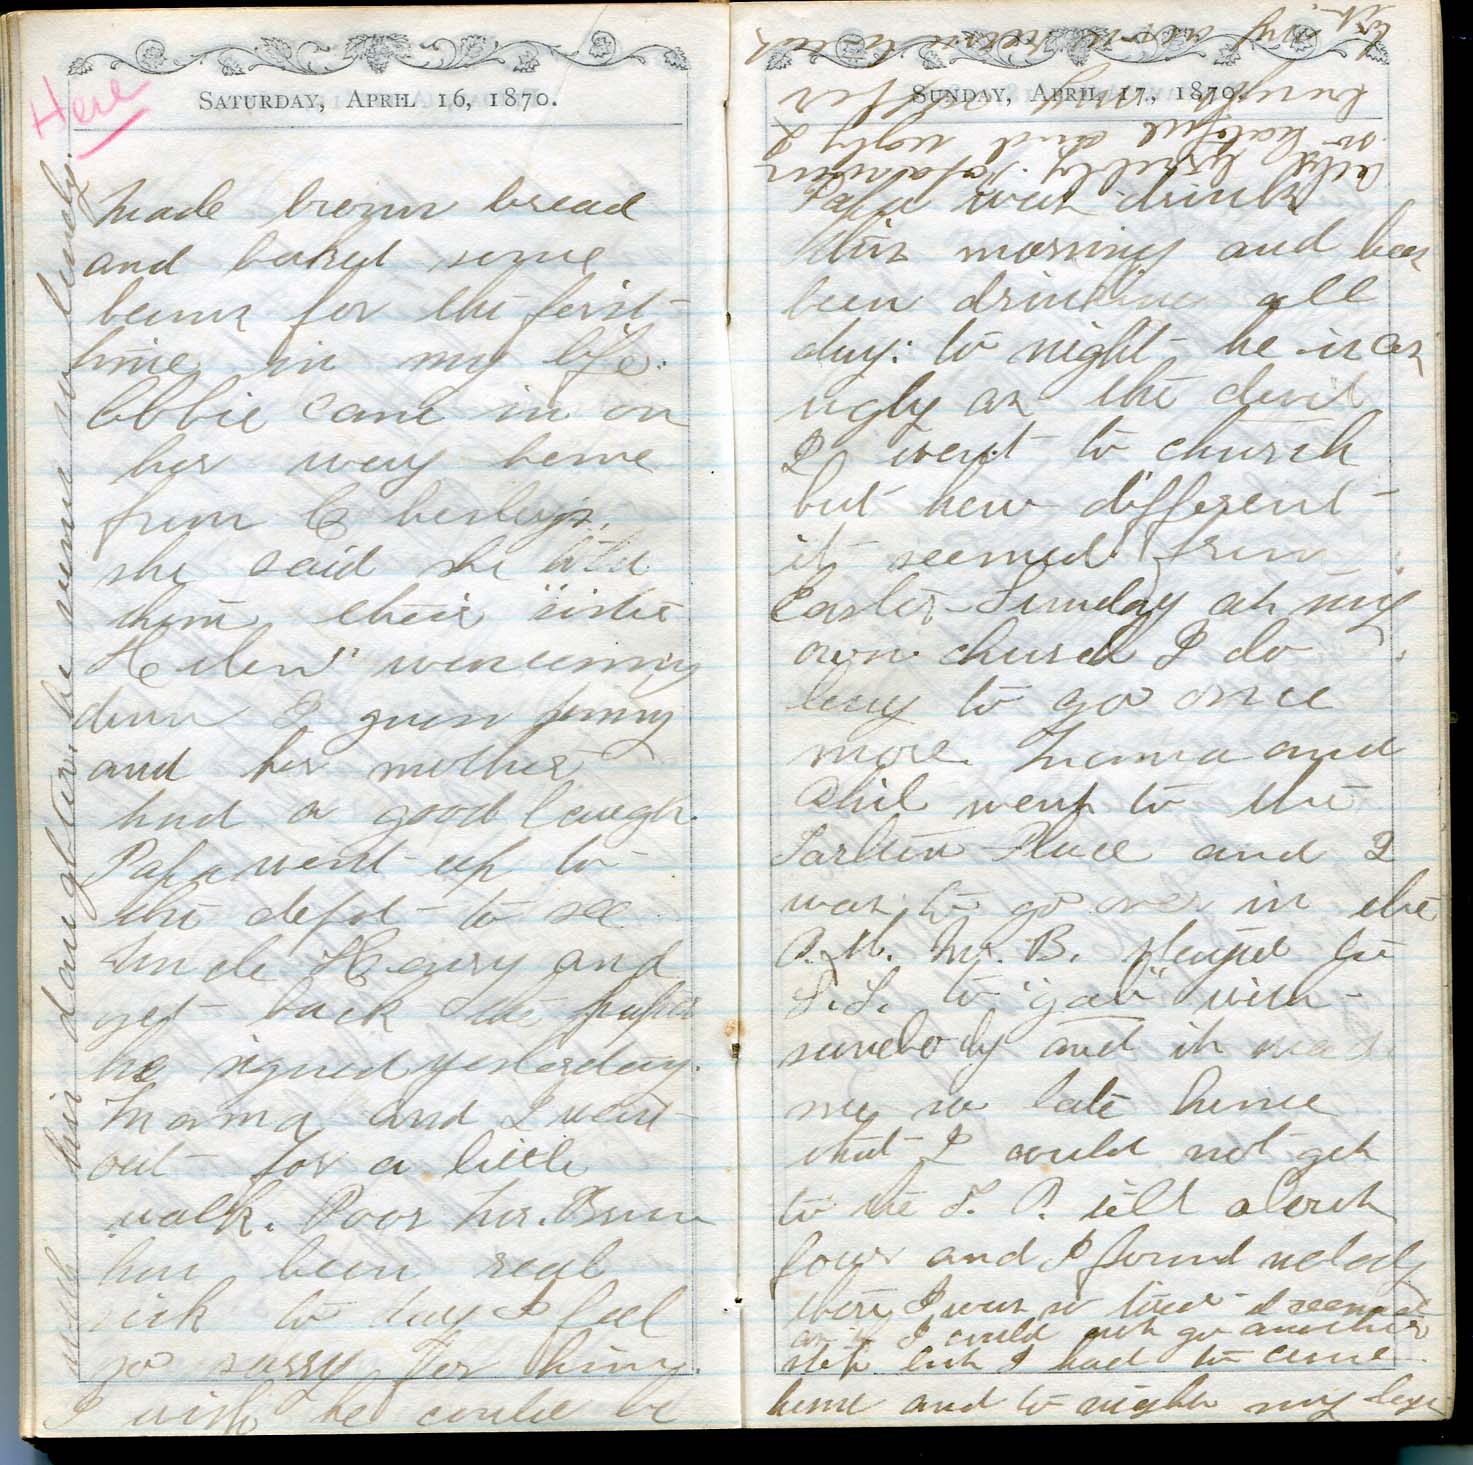 Here
SATURDAY, APRIL 16, 1870.
Made brown bread
and baked some
beans for the first
time in my life.
Abbie came in on
her way home
from
she said she told
them their "sister
Helen" was coming
down I guess Jenny
and her mother
had a good laugh.
Papa went up to
the depot to see
Uncle Henry and
get back the papers
he signed yesterday.
Mama and I went
out for a little
walk. Poor Mr.
has been real
sick to day I feel
so sorry for him.
I wish he could be
with his daughter, he seems so lonely.
SUNDAY, APRIL 17, 1870.
Papa was drunk
this morning and has
been drinking all
day: to night he is as
ugly as the devil
I went to church
but how different
it seemed from
Easter Sunday at my
own church I do
long to go once
more. Mama and
Phil went to the
Tarlton Place and I
was to go over in the
P.M. Mr. B. stayed to
S.S. to "gab" with
somebody and it was
so late home
that I could not get
to the T. P. till about
four and I found nobody
there I was so tired it seemed
as if I could not go another
step but I had to come
home and to night my legs
ache terribly. Papa has been
so hateful and ugly I
for
to my room
it.